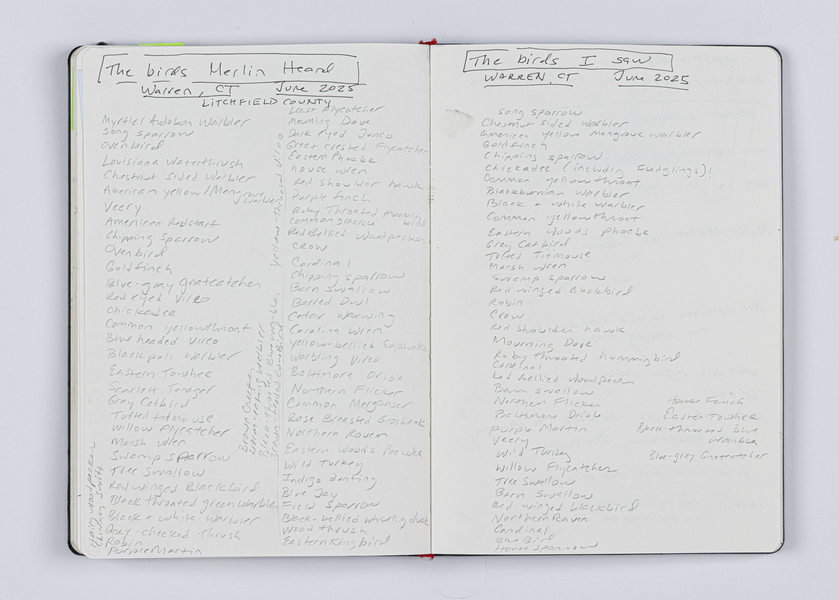 The birds Merlin Heard
Warren, CT June 2025
LITCHFIELD COUNTY
Myrtle/Audobon Warbler
Song sparrow
Ovenbird
Louisiana Waterthrush
Chestnut Sided Warbler
American yellow/Mangrove Warbler
Veery
American Redstart
Chipping Sparrow
Ovenbird
Goldfinch
Blue-gray gnatcatcher
Red eyed Vireo
Chickadee
Common yellowthroat
Blue headed Vireo
Blackpoll Warbler
Eastern Towhee
Scarlett Tanager
Grey Catbird
Tufted titmouse
Willow Flycatcher
Marsh Wren
Swamp Sparrow
Tree Swallow
Red winged Blackbird
Black throated green Warbler
Black + white Warbler
Gray-cheeked Thrush
Robin
Purple Martin
Hairy woodpecker
Chimney Swift
Brown Creeper
Yellow-throated Vireo
Least Flycatcher
Mourning Dove
Dark eyed Junco
Great crested Flycatcher
Eastern Phoebe
house wren
Red shoulder hawk
Purple finch
Ruby Throated Humming bird
Common grackle
Red Bellied Woodpecker
CROW
Cardinal
Chipping sparrow
Barn Swallow
Barred Owl
Cedar Waxwing
Carolina Wren
yellow-bellied Sapsucker
Warbling Vireo
Baltimore Oriole
Northern Flicker
Common Merganser
Rose Breasted Grosbeak
Northern Raven
Eastern Woods Peewee
Wild Turkey
Indigo Bunting
Blue Jay
Field Sparrow
Black-bellied whistling duck
Wood thrush
Eastern Kingbird
The birds I saw
WARREN, CT June 2025
song sparrow
Chestnut sided Warbler
American yellow Mangrove warbler
Goldfinch
Chipping sparrow
Chickadee (including fledglings)!
Common yellowthroat
Blackburnian Warbler
Black + white Warbler
Common yellowthroat
Eastern Woods Phoebe
Grey Catbird
Tufted Titmouse
Marsh Wren
Swamp sparrow
Red winged Blackbird
Robin
Crow
Red shoulder hawk
Mourning Dove
Ruby throated hummingbird
Cardinal
Red bellied woodpecker
Barn swallow
Northern Flicker
Baltimore Oriole
Purple Martin
Veery
Wild Turkey
Willow Flycatcher
Tree Swallow
Barn Swallow
Red winged blackbird
Northern Raven
Cardinal
Blue Bird
House Sparrow
House Finch
Eastern Towhee
Black-throated blue warbler
Blue-grey Gnatcatcher